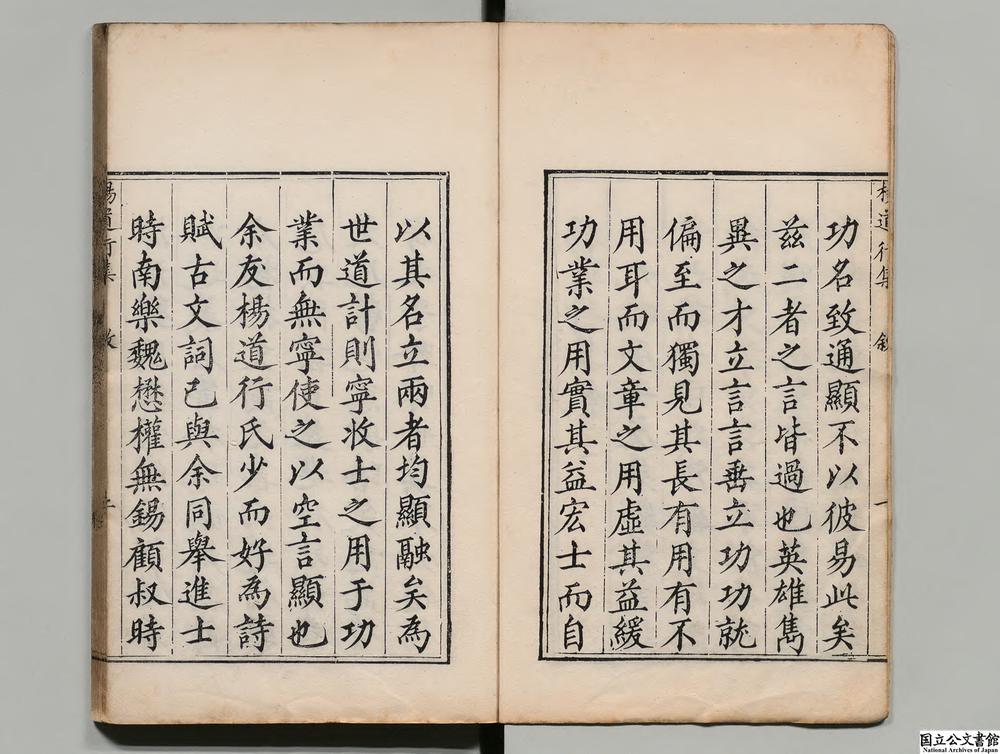 楊道行集 敘 一
功名致通顯不以彼易此矣
茲二者之言皆過也英雄雋
異之才立言言垂立功功就
偏至而獨見其長有用有不
用耳而文章之用虛其益緩
功業之用實其益宏士而自
以其名立兩者均顯融矣為
世道計則寧收士之用于功
業而無寧使之以空言顯也
余友楊道行氏少而好為詩
賦古文詞已與余同舉進士
時南樂魏懋權無錫顧叔時
楊道行集
国立公文書館
National Archives of Japan